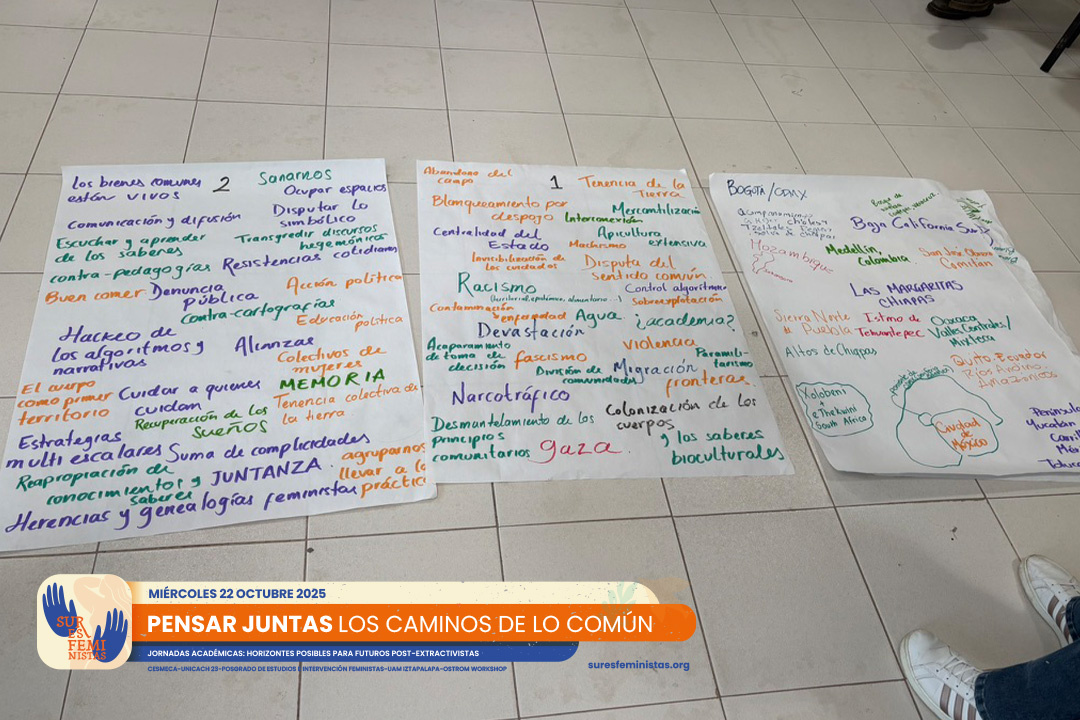 Los bienes comunes
están vivos
2
Sanarnos
Ocupar espacios
Comunicación y difusión
Disputar lo
simbólico
Escuchar y aprender
de los saberes
Transgredir discursos
hegemónicos
contra-pedagogías
Resistencias cotidianas
Buen comer
Denuncia
pública
Acción política
contra-cartografías
Educación
política
Hackeo de
los algoritmos y
narrativas
Alianzas
Colectivos de
mujeres
El cuerpo
como primer
territorio
Cuidar a quienes
cuidan
MEMORIA
Recuperación de los
sueños
Tenencia colectiva de
la tierra
Estrategias
multi escalares
Suma de complicidades
Reapropiación de
conocimientos y
saberes
JUNTANZA
agruparnos
llevar a la
práctica
Herencias y genealogías feministas
Abandono del
campo
1
Tenencia de la
Tierra
Blanqueamiento por
despojo
Mercantilización
Interconexión
Centralidad del
Estado
Apicultura
extensiva
Machismo
Invisibilización de
los cuidados
Disputa del
sentido común
Racismo
Control algorítmico
(territorial, epistémico, alimentario...)
Sobreexplotación
Contaminación
enfermedad
Agua
¿academia?
Devastación
Acaparamiento
de toma de
decisión
fascismo
violencia
División de
comunidades
Migración
Paramili-
tarismo
fronteras
Narcotráfico
Desmantelamiento de los
principios
comunitarios
Colonización de los
cuerpos
y los saberes
bioculturales
gaza
BOGOTÁ/CDMX
Baja California Sur
Mozambique
Medellín,
Colombia
San José
Comitán
LAS MARGARITAS
CHIAPAS
Sierra Norte
Puebla
Istmo de
Tehuantepec
Oaxaca
Valles Centrales/
Mixteca
Altos de Chiapas
Quito-Ecuador
Ríos Andino
Amazónicos
Xolobeni
+
eThekwini
South Africa
Ciudad
de
México
Península
Yucatán
MIÉRCOLES 22 OCTUBRE 2025
PENSAR JUNTAS LOS CAMINOS DE LO COMÚN
JORNADAS ACADÉMICAS: HORIZONTES POSIBLES PARA FUTUROS POST-EXTRACTIVISTAS
CESMECA-UNICACH 23-POSGRADO DE ESTUDIOS E INTERVENCIÓN FEMINISTAS-UAM IZTAPALAPA-OSTROM WORKSHOP
suresfeministas.org
SUR
ES
FEMI
NISTAS